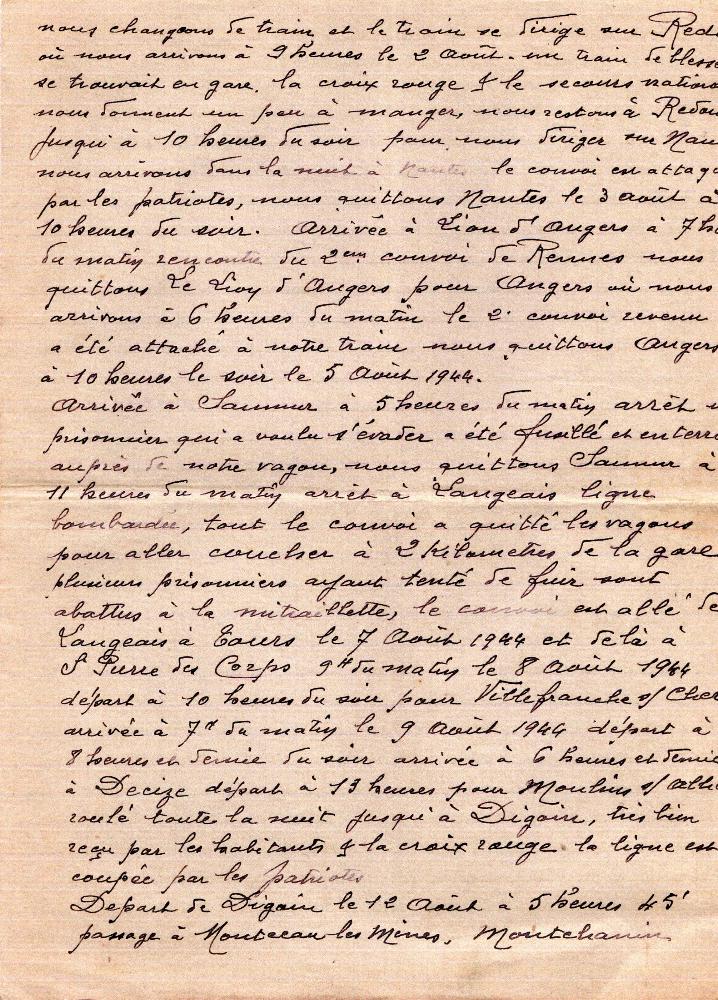 nous changeons de train et le train se dirige sur Red
où nous arrivons à 9 heures le 2 Août. un train de blessé
se trouvait en gare. la croix rouge & le secours nationa
nous donnent un peu à manger, nous restons à Redon
jusqu'à 10 heures du soir pour nous diriger sur Nan
nous arrivons dans la nuit à Nantes le convoi est attaq
par les patriotes, nous quittons Nantes le 3 août à
10 heures du soir. Arrivée à Lion d'Angers à 7 h
du matin rencontre du 2em convoi de Rennes nous
quittons Le Lion d'Angers pour Angers où nous
arrivons à 6 heures du matin le 2e convoi revenu
a été attaché à notre train nous quittons Angers
à 10 heures le soir le 5 Août 1944.
Arrivée à Saumur à 5 heures du matin arrêt
prisonnier qui a voulu s'évader a été fusillé et enterré
auprès de notre vagon, nous quittons Saumur à
11 heures du matin arrêt à Langeais ligne
bombardée, tout le convoi a quitté les vagons
pour aller coucher à 2 kilometres de la gare
plusieurs prisonniers ayant tenté de fuir sont
abattus à la mitraillette, le convoi est allé de
Langeais à Tours le 7 Août 1944 et de là à
St Pierre des Corps 9h du matin le 8 Août 1944
départ à 10 heures du soir pour Villefranche s/ Cher
arrivée à 7h du matin le 9 Août 1944 départ à
8 heures et demie du soir arrivée à 6 heures et demie
à Decize départ à 13 heures pour Moulins s/ Alli
roulé toute la nuit jusqu'à Digoin, très bien
reçu par les habitants & la croix rouge la ligne est
coupée par les patriotes
Depart de Digoin le 12 Août à 5 heures 45'
passage à Montceau les Mines, Montchanin